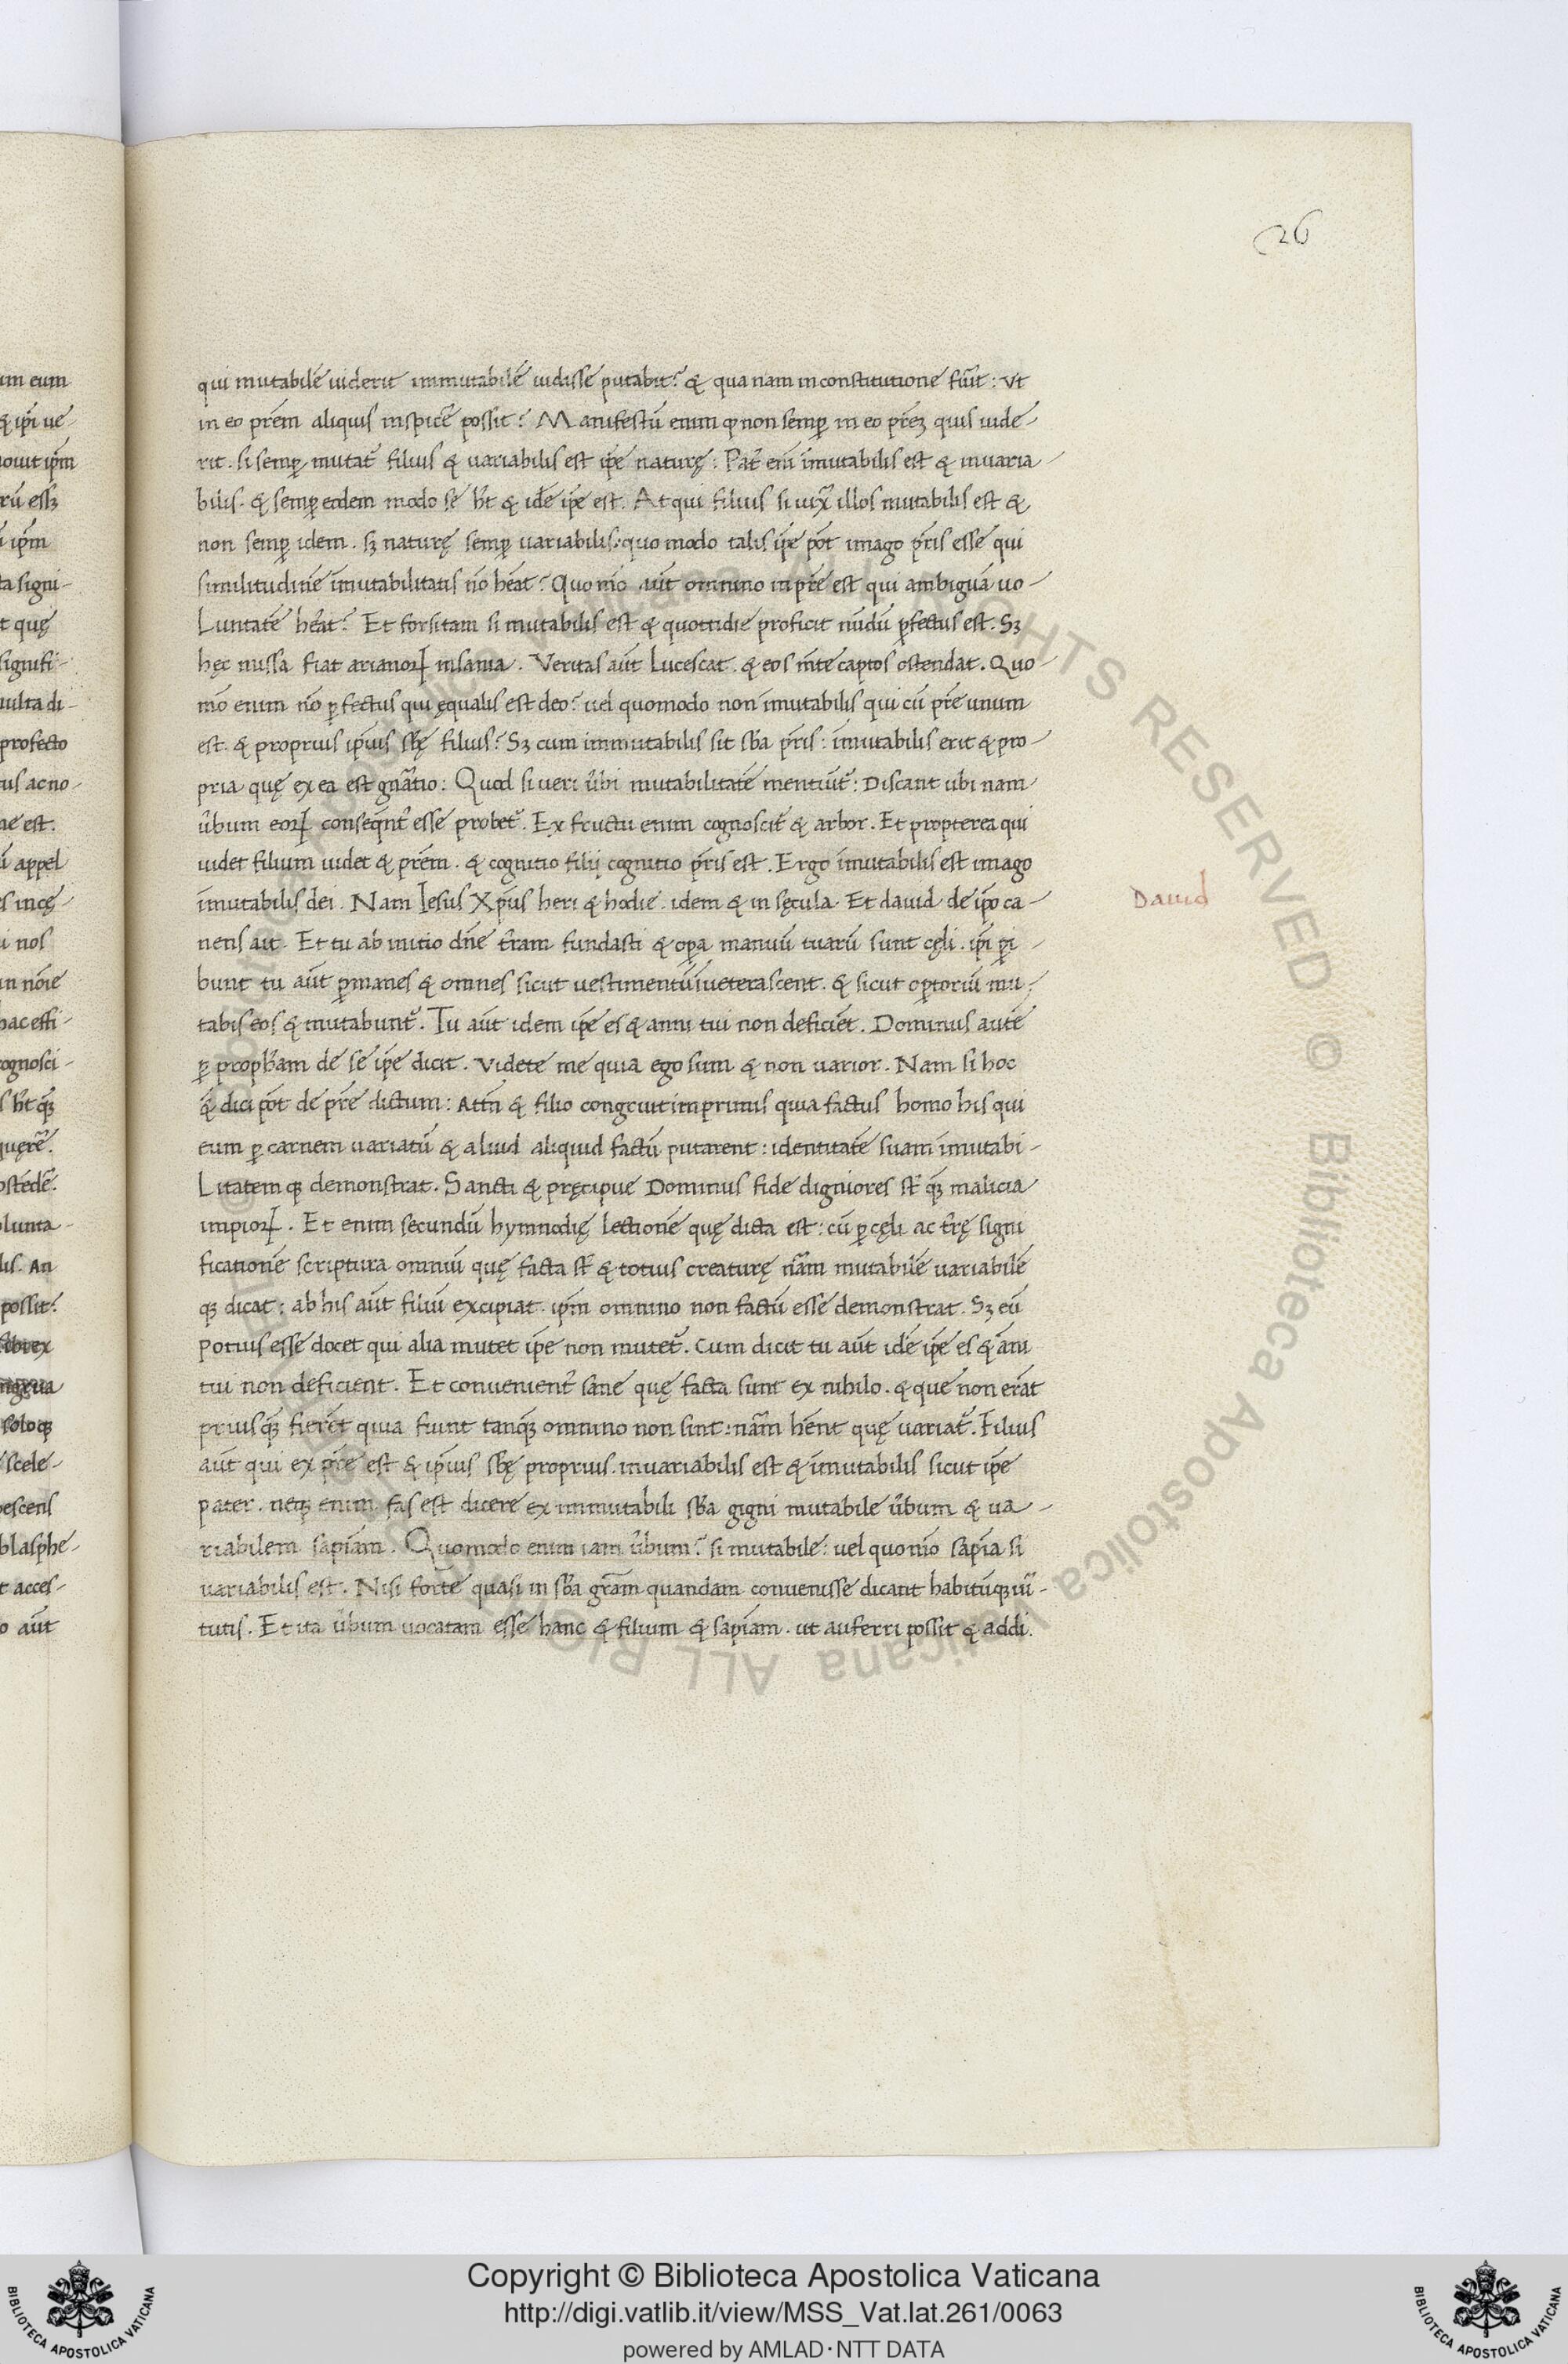 26
qui mutabilē uiderit immutabilē uidisse putabit? & qua nam in constitutione fuīt: Vt
in eo prēm aliquis inspicēr possit? Manifestū enim ꝙ non semꝑ in eo prēꝫ quis uide-
rit. si semꝑ mutatr̄ filius & uariabilis est ip̄e naturę: Patr̄ em̄ īmutabilis est & inuaria-
bilis. & semꝑ eodem modo se hr̄t & idē ip̄e est. Atqui filius si iuxᷓ illos mutabilis est &
non semꝑ idem. sꝫ naturę semꝑ uariabilis: quo modo talis ip̄e pōt imago pr̄is esse qui
similitudinē īmutabilitatis nō hēat? Quo mō aūt omnino in pr̄e est qui ambiguā uo-
Luntatē hēat? Et forsitam si mutabilis est & quottidie proficit nūdū ꝑfectus est. Sꝫ
hęc missa fiat arianoꝝ insania. Veritas aūt Lucescat. & eos mīte captos ostendat. Quo-
mō enim nō ꝑfectus qui ęqualis est deo? uel quomodo non īmutabilis qui cū pr̄e unum
est. & proprius ipīus sb̄ę filius? Sꝫ cum immutabilis sit sb̄a pr̄is: īmutabilis erit & pro-
pria quę ex ea est gnātio: Quod si ueri ūbi mutabilitatē mentiūtr̄: Discant ubi nam
ūbum eoꝝ conseqn̄tr̄ esse probetr̄. Ex fructu enim cognoscitr̄ & arbor. Et propterea qui
uidet filium uidet & prēm. & cognitio filij cognitio pr̄is est. Ergo īmutabilis est imago
īmutabilis dei. Nam Iesus Xp̄us heri & hodie. idem & in sęcula. Et dauid de ip̄o ca-
David
nens ait. Et tu ab initio dn̄e tr̄am fundasti & opa manuū tuarū sunt cęli. ip̄i ꝑi-
bunt tu aūt ꝑmanes & omnes sicut uestimentū īueterascent. & sicut opꝑtoriū mu-
tabis eos & mutabuntr̄. Tu aūt idem ip̄e es & anni tui non deficiēt. Dominus autē
ꝑ prophām de se ip̄e dicit. Videte me quia ego sum & non uarior. Nam si hoc
& dici pōt de pr̄e dictum: Attn̄ & filio congruit imprimis quia factus homo his qui
eum ꝑ carnem uariatū & aliud aliquid factū putarent: identitatē suam īmutabi-
Litatemqꝫ demonstrat. Sancti & pręcipue Dominus fide digniores st̄ qꝫ malicia
impioꝝ. Et enim secundū hymnodię lectionē quę dicta est: cū ꝑ cęli ac tr̄ę signi
ficationē scriptura omniū quę facta st̄ & totius creaturę nām mutabilē uariabilē
qꝫ dicat: ab his aūt filiū excipiat. ip̄m omnino non factū esse demonstrat. Sꝫ eū
potius esse docet qui alia mutet ip̄e non mutetr̄. Cum dicit tu aūt idē ip̄e es & āni
tui non deficient. Et conuenientr̄ sane quę facta sunt ex nihilo. & que non erāt
priusqꝫ fierēt quia fiunt tanqꝫ omnino non sint: nām hēnt quę uariatr̄. Filius
aūt qui ex pr̄e est & ipīus sb̄ę proprius. inuariabilis est & īmutabilis sicut ip̄e
pater. neqꝫ enim fas est dicere ex immutabili sb̄a gigni mutabile ūbum & ua-
riabilem sapiām. Quomodo enim iam ūbum? si mutabile: uel quo mō sapīa si
uariabilis est. Nisi forte quasi in sb̄a grām quandam conuenisse dicant habitūqꝫ uir̄-
tutis. Et ita ūbum uocatam esse hanc & filium & sapiām. ut auferri possit & addi.